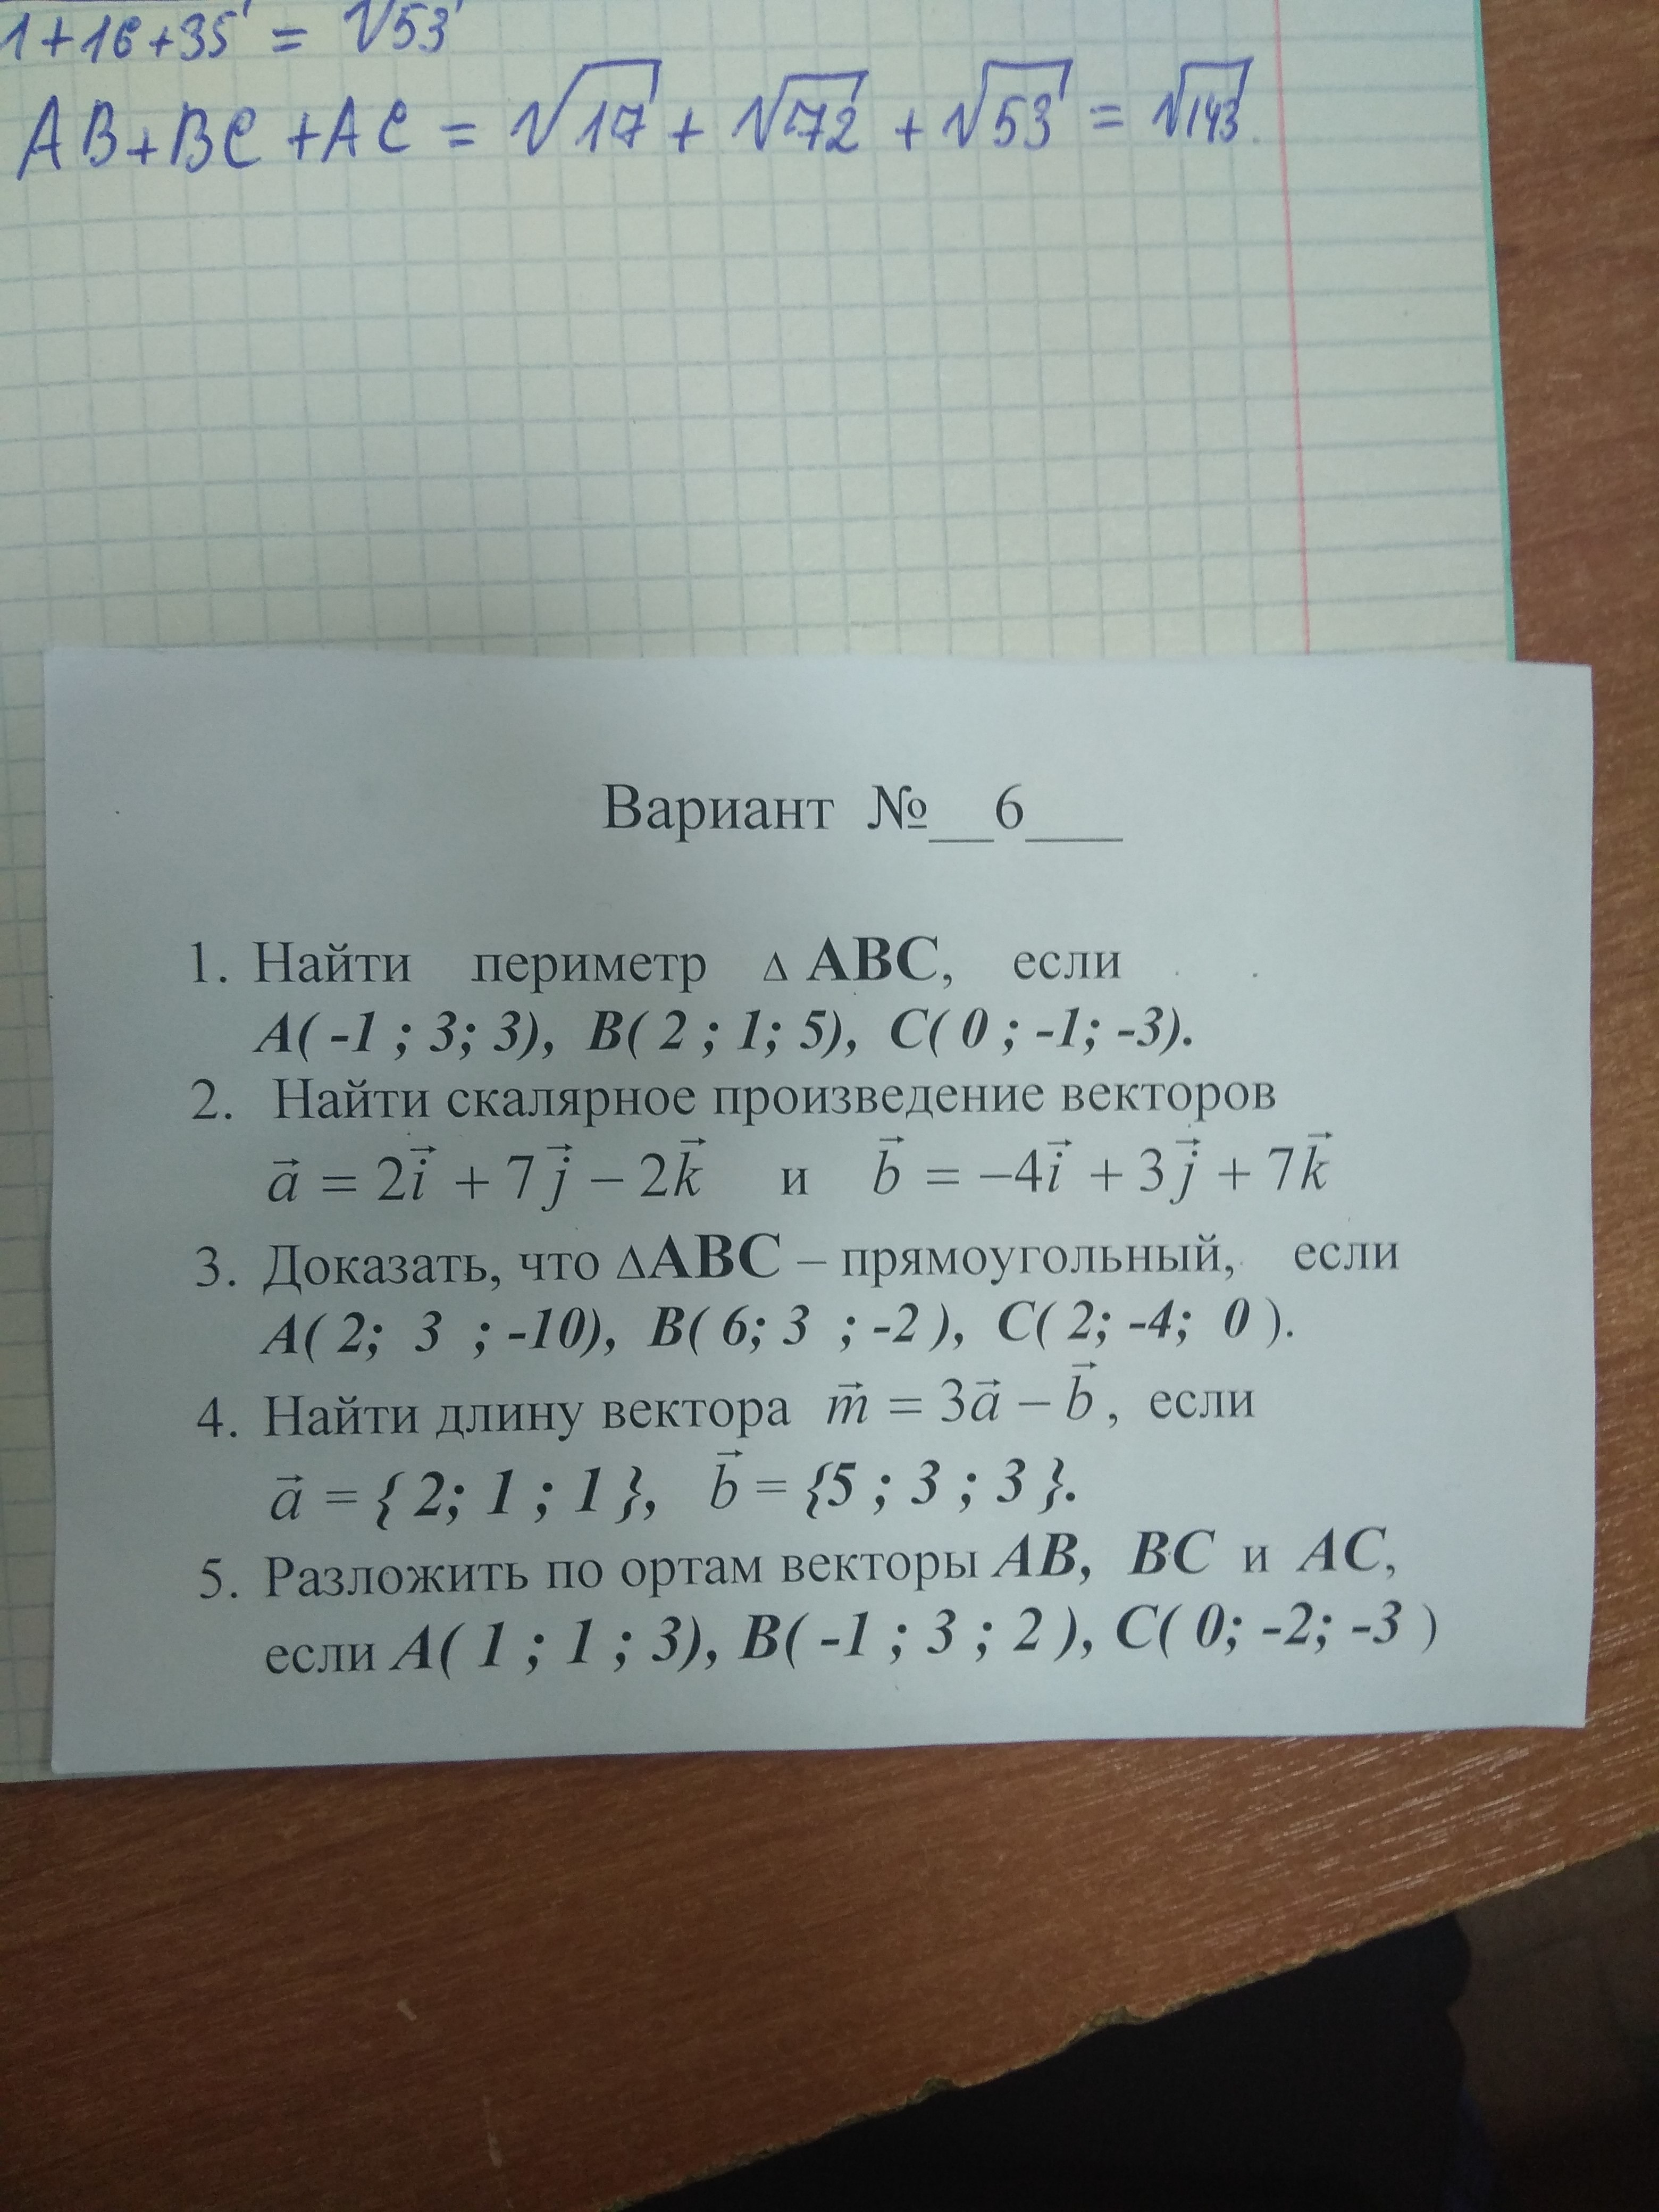 1+16+35 = √53
AB+BC+AC = √17 + √72 + √53 = √143
Вариант №__6___
1. Найти периметр Δ ABC, если
A( -1 ; 3; 3), B( 2 ; 1; 5), C( 0 ; -1; -3).
2. Найти скалярное произведение векторов
a⃗ = 2i⃗ + 7j⃗ − 2k⃗ и b⃗ = −4i⃗ + 3j⃗ + 7k⃗
3. Доказать, что ΔABC – прямоугольный, если
A( 2; 3 ; -10), B( 6; 3 ; -2 ), C( 2; -4; 0 ).
4. Найти длину вектора m⃗ = 3a⃗ − b⃗ , если
a⃗ = { 2; 1 ; 1 }, b⃗ = {5 ; 3 ; 3 }.
5. Разложить по ортам векторы AB, BC и AC,
если A( 1 ; 1 ; 3), B( -1 ; 3 ; 2 ), C( 0; -2; -3 )